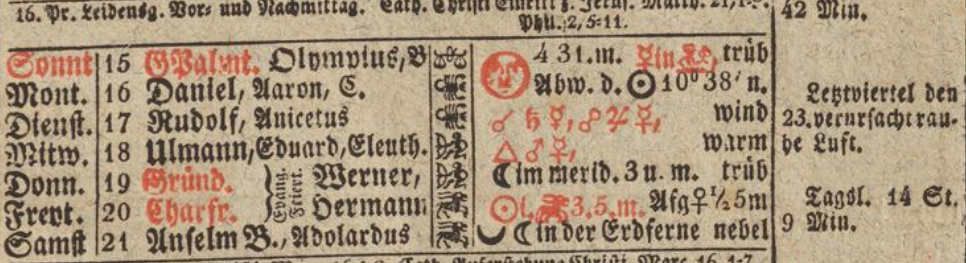 16. Pr. Leidensg. Vor- und Nachmittag. Cath. Christi Einritt z. Jerus. Matth. 21,1-9.
Phil. 2, 5-11.
42 Min.
Sonnt 15 G Palmt. Olympius, B 4 31. m. ☿ in trüb
Mont. 16 Daniel, Aaron, C. Abw. d. ☉ 10° 38' n.
Dienst. 17 Rudolf, Anicetus ☌ ♄ ☿, ☍ ♃ ☿, wind
Mitw. 18 Ulmann, Eduard, Eleuth. △ ♂ ☿, warm
Donn. 19 Gründ. Evang. Werner, ☾ im merid. 3 u. m. trüb
Freyt. 20 Charfr. Feiert. Hermann ☉ i. ♉ 3,5. m. Afg ♀ ½ 5 m
Samst 21 Anselm B., Adolardus ☾ in der Erdferne nebel
Letztviertel den
23. verursacht rau-
he Luft.
Tagsl. 14 St.
9 Min.